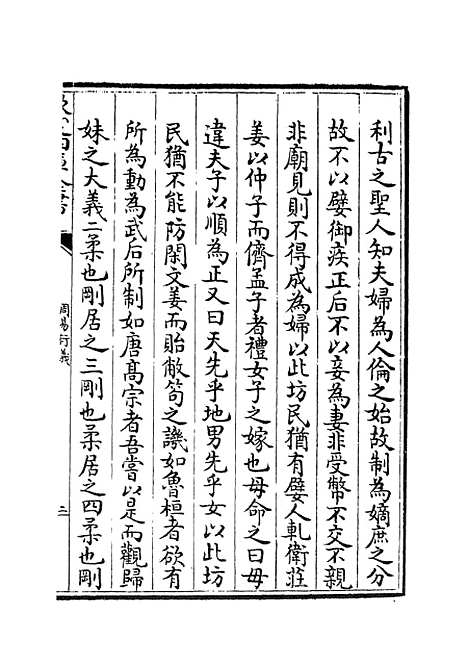 利古之聖人知夫婦為人倫之始故制為嫡庶之分
故不以嬖御疾正后不以妾為妻非受幣不交不親
非廟見則不得成為婦以此坊民猶有嬖人軋衛莊
姜以仲子而儕孟子者禮女子之嫁也母命之曰毋
違夫子以順為正又曰天先乎地男先乎女以此坊
民猶不能防閑文姜而貽敝笱之譏如魯桓者欲有
所為動為武后所制如唐髙宗者吾嘗以是而觀歸
妹之大義二柔也剛居之三剛也柔居之四柔也剛
周易衍義
三